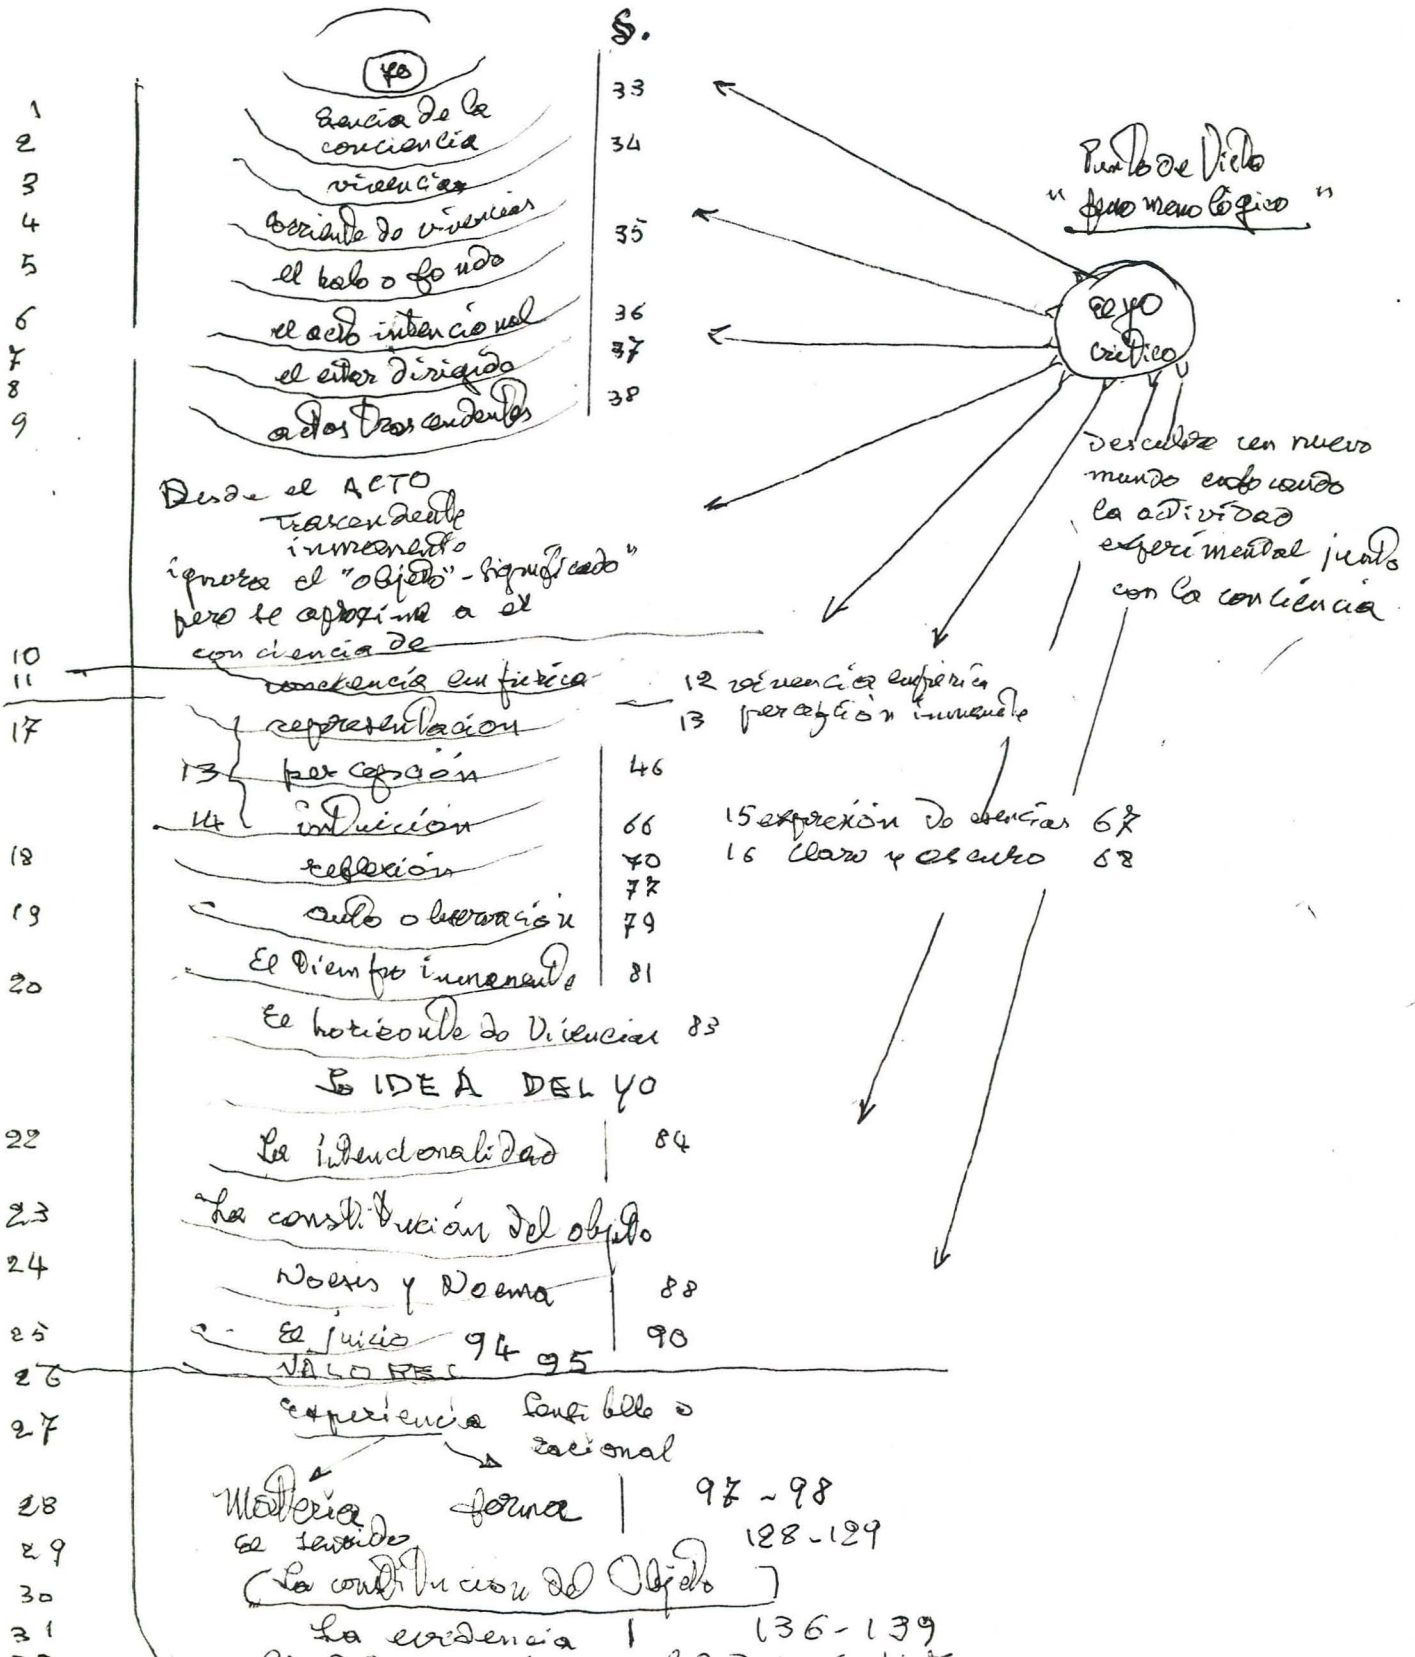 §.
yo
33
1
esencia de la
2
conciencia
34
3
vivencias
4
corriente de vivencias
35
5
el halo o fondo
6
el acto intencional
36
7
el estar dirigido
37
8
actos trascendentes
38
9
Punto de Vista
"fenomenológico"
el yo
crítico
Descubre un nuevo
mundo enfocando
la actividad
experimental junto
con la conciencia
Desde el ACTO
trascendente
inmanente
ignora el "objeto"-significado"
pero se aproxima a el
conciencia de
10
11
conciencia empírica
12 vivencia empírica
13 percepción inmanente
17
representación
13 percepción 46
14 intuición 66
15 expresión de esencias 67
16 claro y oscuro 68
18
reflexión 70
77
19
auto observación 79
20
El tiempo inmanente 81
El horizonte de Vivencias 83
La IDEA DEL YO
22
La intencionalidad 84
23
La constitución del objeto
24
Noesis y Noema 88
25
El juicio 94 95 90
26
VALORES
27
experiencia sensible o
racional
28
Materia forma 97-98
29
El sentido 128-129
30
(La constitución del Objeto)
31
La evidencia 136-139